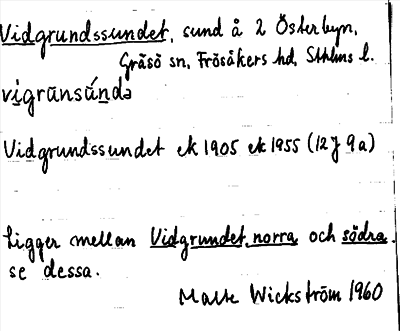 Vidgrundssundet, sund å 2 Österbyn,
Gräsö sn, Frösåkers hd, Sthlms l.
vi̱grūnsúndə
Vidgrundssundet ek 1905 ek 1955 (12J 9a)
Ligger mellan Vidgrundet, norra och södra.
se dessa.
Malte Wickström 1960